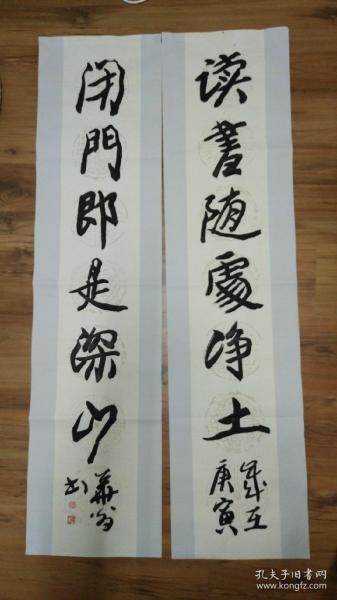 读书随處净土
岁在
庚寅
闭門即是深山
華翁
书
孔夫子旧书网
www.kongfz.com